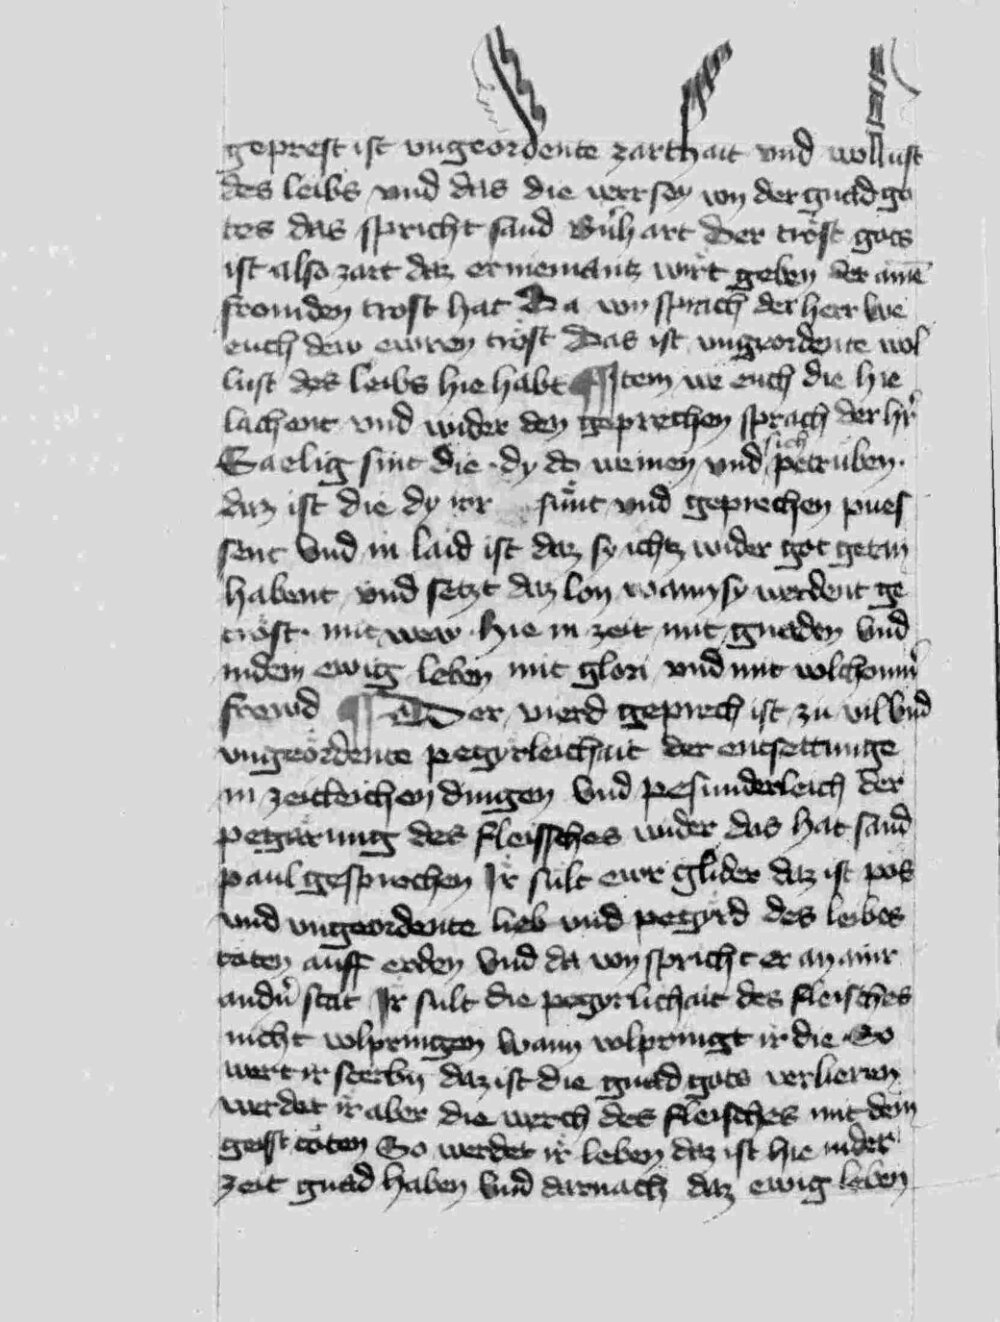 geprest ist vngeordente zarthait vnd wollust
des leibs vnd das die wer sey von der gnad go
tes das spricht sand Bernhart Der tröst gots
ist also zart daz er niemantz wirt geben der ainē
fromden trost hat Da von sprach der herr we
euch dew ewren tröst Das ist vngeordente wol
lust des leibs hie habt ¶ Item we euch die hie
lachent vnd wider den geprechen sprach der hr̄
Saelig sint die dy do weinen vnd sich petrüben
daz ist die dy irr sünt vnd geprechen pues
sent Vnd in laid ist daz sy ichtz wider got getan
habent vnd setzt daz lon wann sy werdent ge
tröst mit wew hie in zeit mit gnaden Vnd
in dem ewig leben mit glori vnd mit volchomner
frewd ¶ Der vierd geprech ist zu vil vnd
vngeördente pegyrleichait der entsettunge
in zeitleichen dingen Vnd pesunderleich der
pegirung des fleissches wider das hat sand
paul gesprochen Ir sult ewr glider daz ist pös
vnd vngeordente lieb vnd pegyrd des leibes
töten auff erden Vnd da von spricht er an ainr
andern stat Ir sult die pegyrlichait des fleisches
nicht volpringen Wann volpringt ir die So
wert ir sterbn daz ist die gnad gots verlieren
werdet ir aber die werch des fleisches mit dem
geist töten So werdet ir leben daz ist hie in der
zeit gnad haben Vnd darnach daz ewig leben